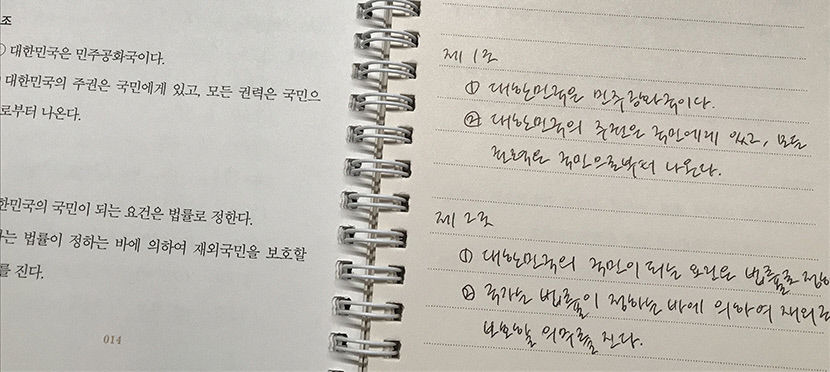 조
① 대한민국은 민주공화국이다.
대한민국의 주권은 국민에게 있고, 모든 권력은 국민으
로부터 나온다.
한민국의 국민이 되는 요건은 법률로 정한다.
는 법률이 정하는 바에 의하여 재외국민을 보호할
를 진다.
014
제 1조
① 대한민국은 민주공화국이다.
② 대한민국의 주권은 국민에게 있고, 모든
권력은 국민으로부터 나온다.
제 2조
① 대한민국의 국민이 되는 요건은 법률로 정한
② 국가는 법률이 정하는 바에 의하여 재외국
보호할 의무를 진다.